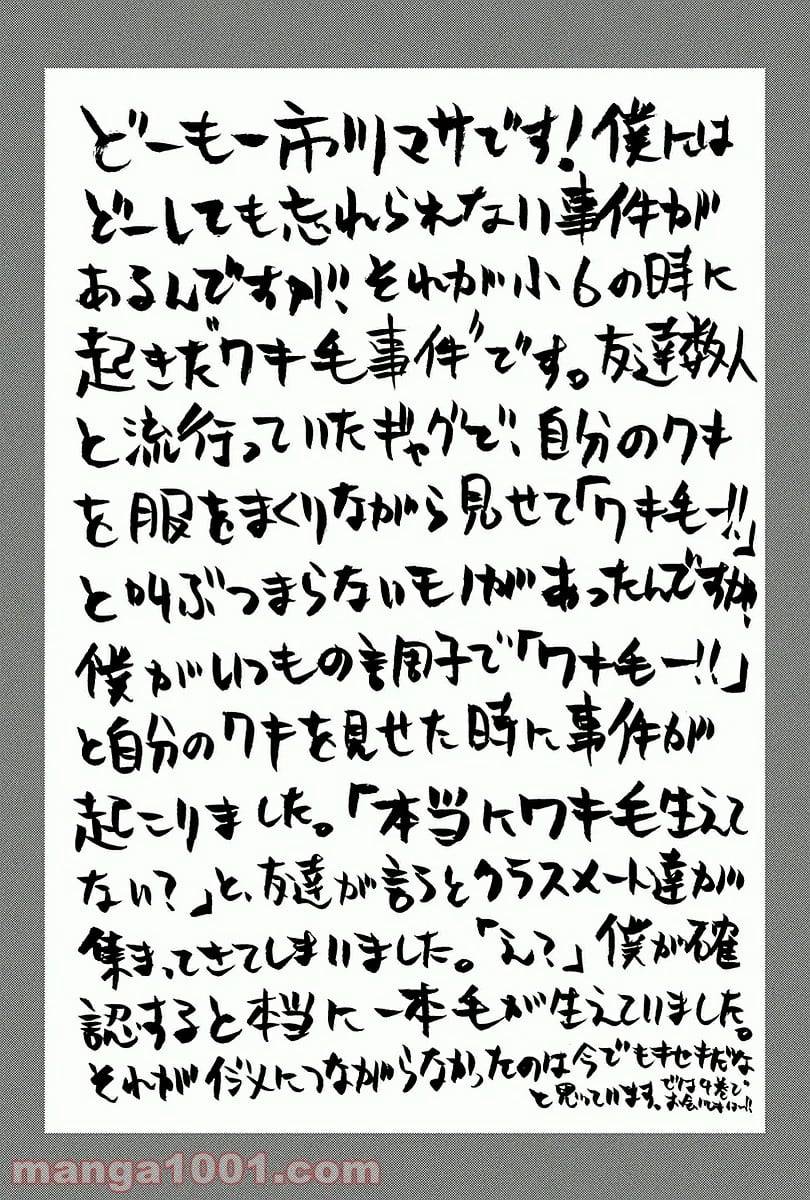 どーもー市川マサです！僕には
どーしても忘れられない事件が
あるんですが！それが小6の時に
起きた"ワキ毛事件"です。友達数人
と流行っていたギャグで、自分のワキ
を服をまくりながら見せて「ワキ毛ー!!」
と叫ぶつまらないモノがあったんですが、
僕がいつもの調子で「ワキ毛ー!!」
と自分のワキを見せた時に事件が
起こりました。「本当にワキ毛生えて
ない？」と、友達が言うとクラスメート達が
集まってきてしまいました。「え？」僕が確
認すると本当に一本毛が生えていました。
それがイジメにつながらなかったのは今でもキセキだな
と思っています。では4巻で、
お会いしましょー!!
manga1001.com